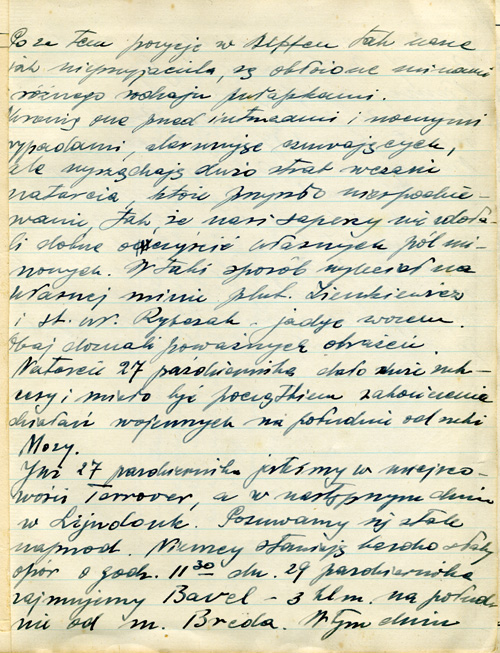 Poza tem pozycje w Alpfen tak nasze
jak nieprzyjaciela, są obłożone minami
różnego rodzaju pułapkami.
Bronią one przed intruzami i nocnymi
wypadami, alarmując czuwających,
ale wyrządzają dużo strat wczasie
natarcia, które przyszło niespodzie-
wanie, tak że nasi saperzy nie zdoła-
li dobrze oczyścić własnych pól mi-
nowych. W taki sposób wyleciał na
własnej minie plut. Zienkiewicz
i st. uł. Rybczak jadąc wozem.
Obaj doznali poważnych obrażeń.
Natarcie 27 października dało duże suk-
cesy i miało być początkiem zakończenia
działań wojennych na południe od rzeki
Mozy.
Już 27 października jesteśmy w miejsco-
wości Terrover, a w następnym dniu
w Lijndonk. Posuwamy się stale
naprzód. Niemcy stawiają bardzo słaby
opór o godz. 11 30 dn. 29 października
zajmujemy Bavel – 3 klm. na połud-
nie od m. Breda. W tym dniu